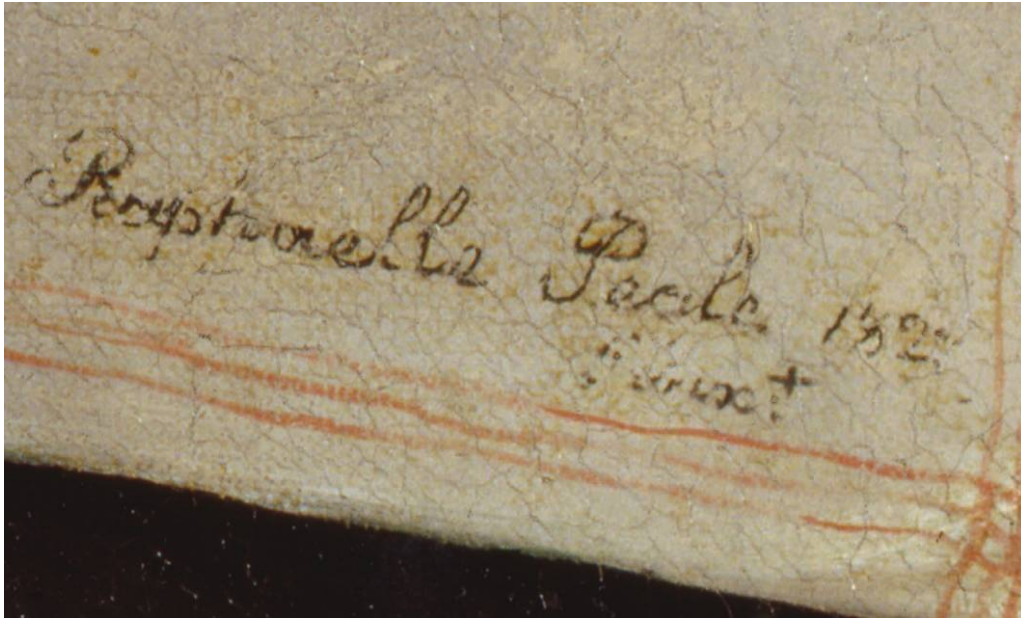 Raphaelle Peale 182
Pinxt